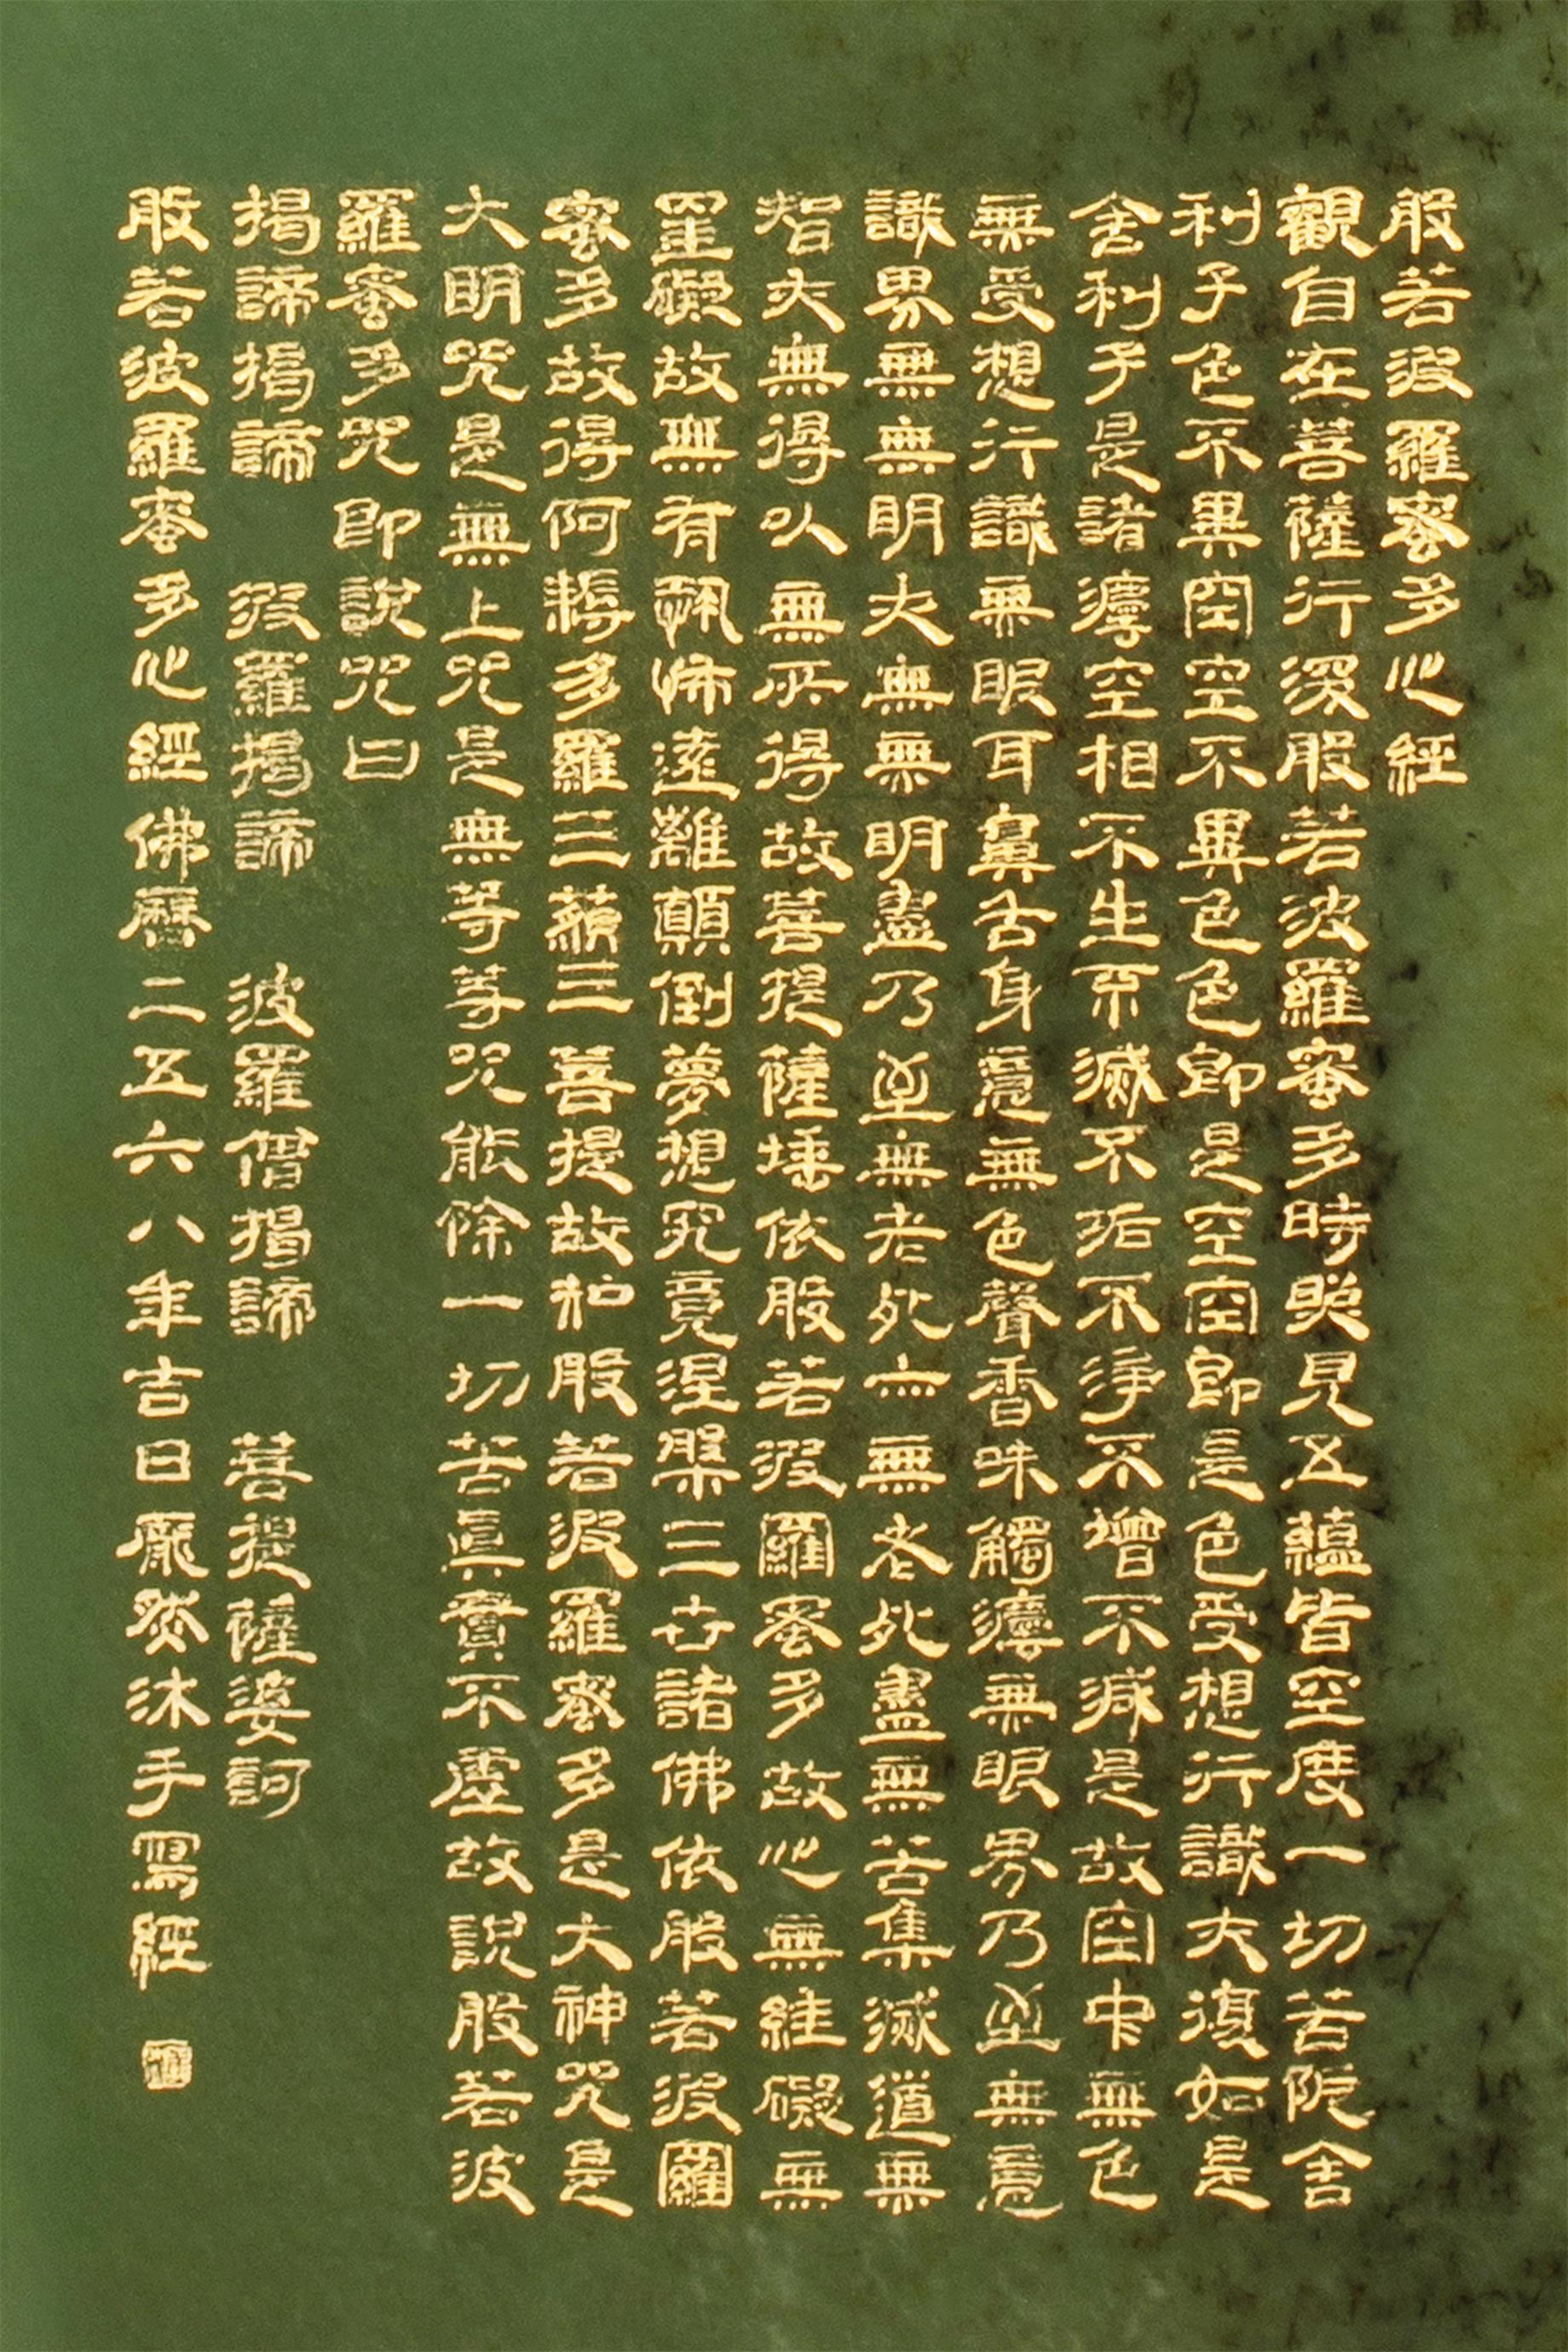 般若波羅蜜多心經
觀自在菩薩行深般若波羅蜜多時照見五蘊皆空度一切苦厄舍
利子色不異空空不異色色即是空空即是色受想行識亦復如是
舍利子是諸灋空相不生不滅不垢不淨不增不減是故空中無色
無受想行識無眼耳鼻舌身意無色聲香味觸灋無眼界乃至無意
識界無無明亦無無明盡乃至無老死亦無老死盡無苦集滅道無
智亦無得以無所得故菩提薩埵依般若波羅蜜多故心無罣礙無
罣礙故無有恐怖遠離顛倒夢想究竟涅槃三世諸佛依般若波羅
蜜多故得阿耨多羅三藐三菩提故知般若波羅蜜多是大神咒是
大明咒是無上咒是無等等咒能除一切苦真實不虛故說般若波
羅蜜多咒即說咒曰
揭諦揭諦 波羅揭諦 波羅僧揭諦 菩提薩婆訶
般若波羅蜜多心經佛曆二五六八年吉日龐然沐手寫經